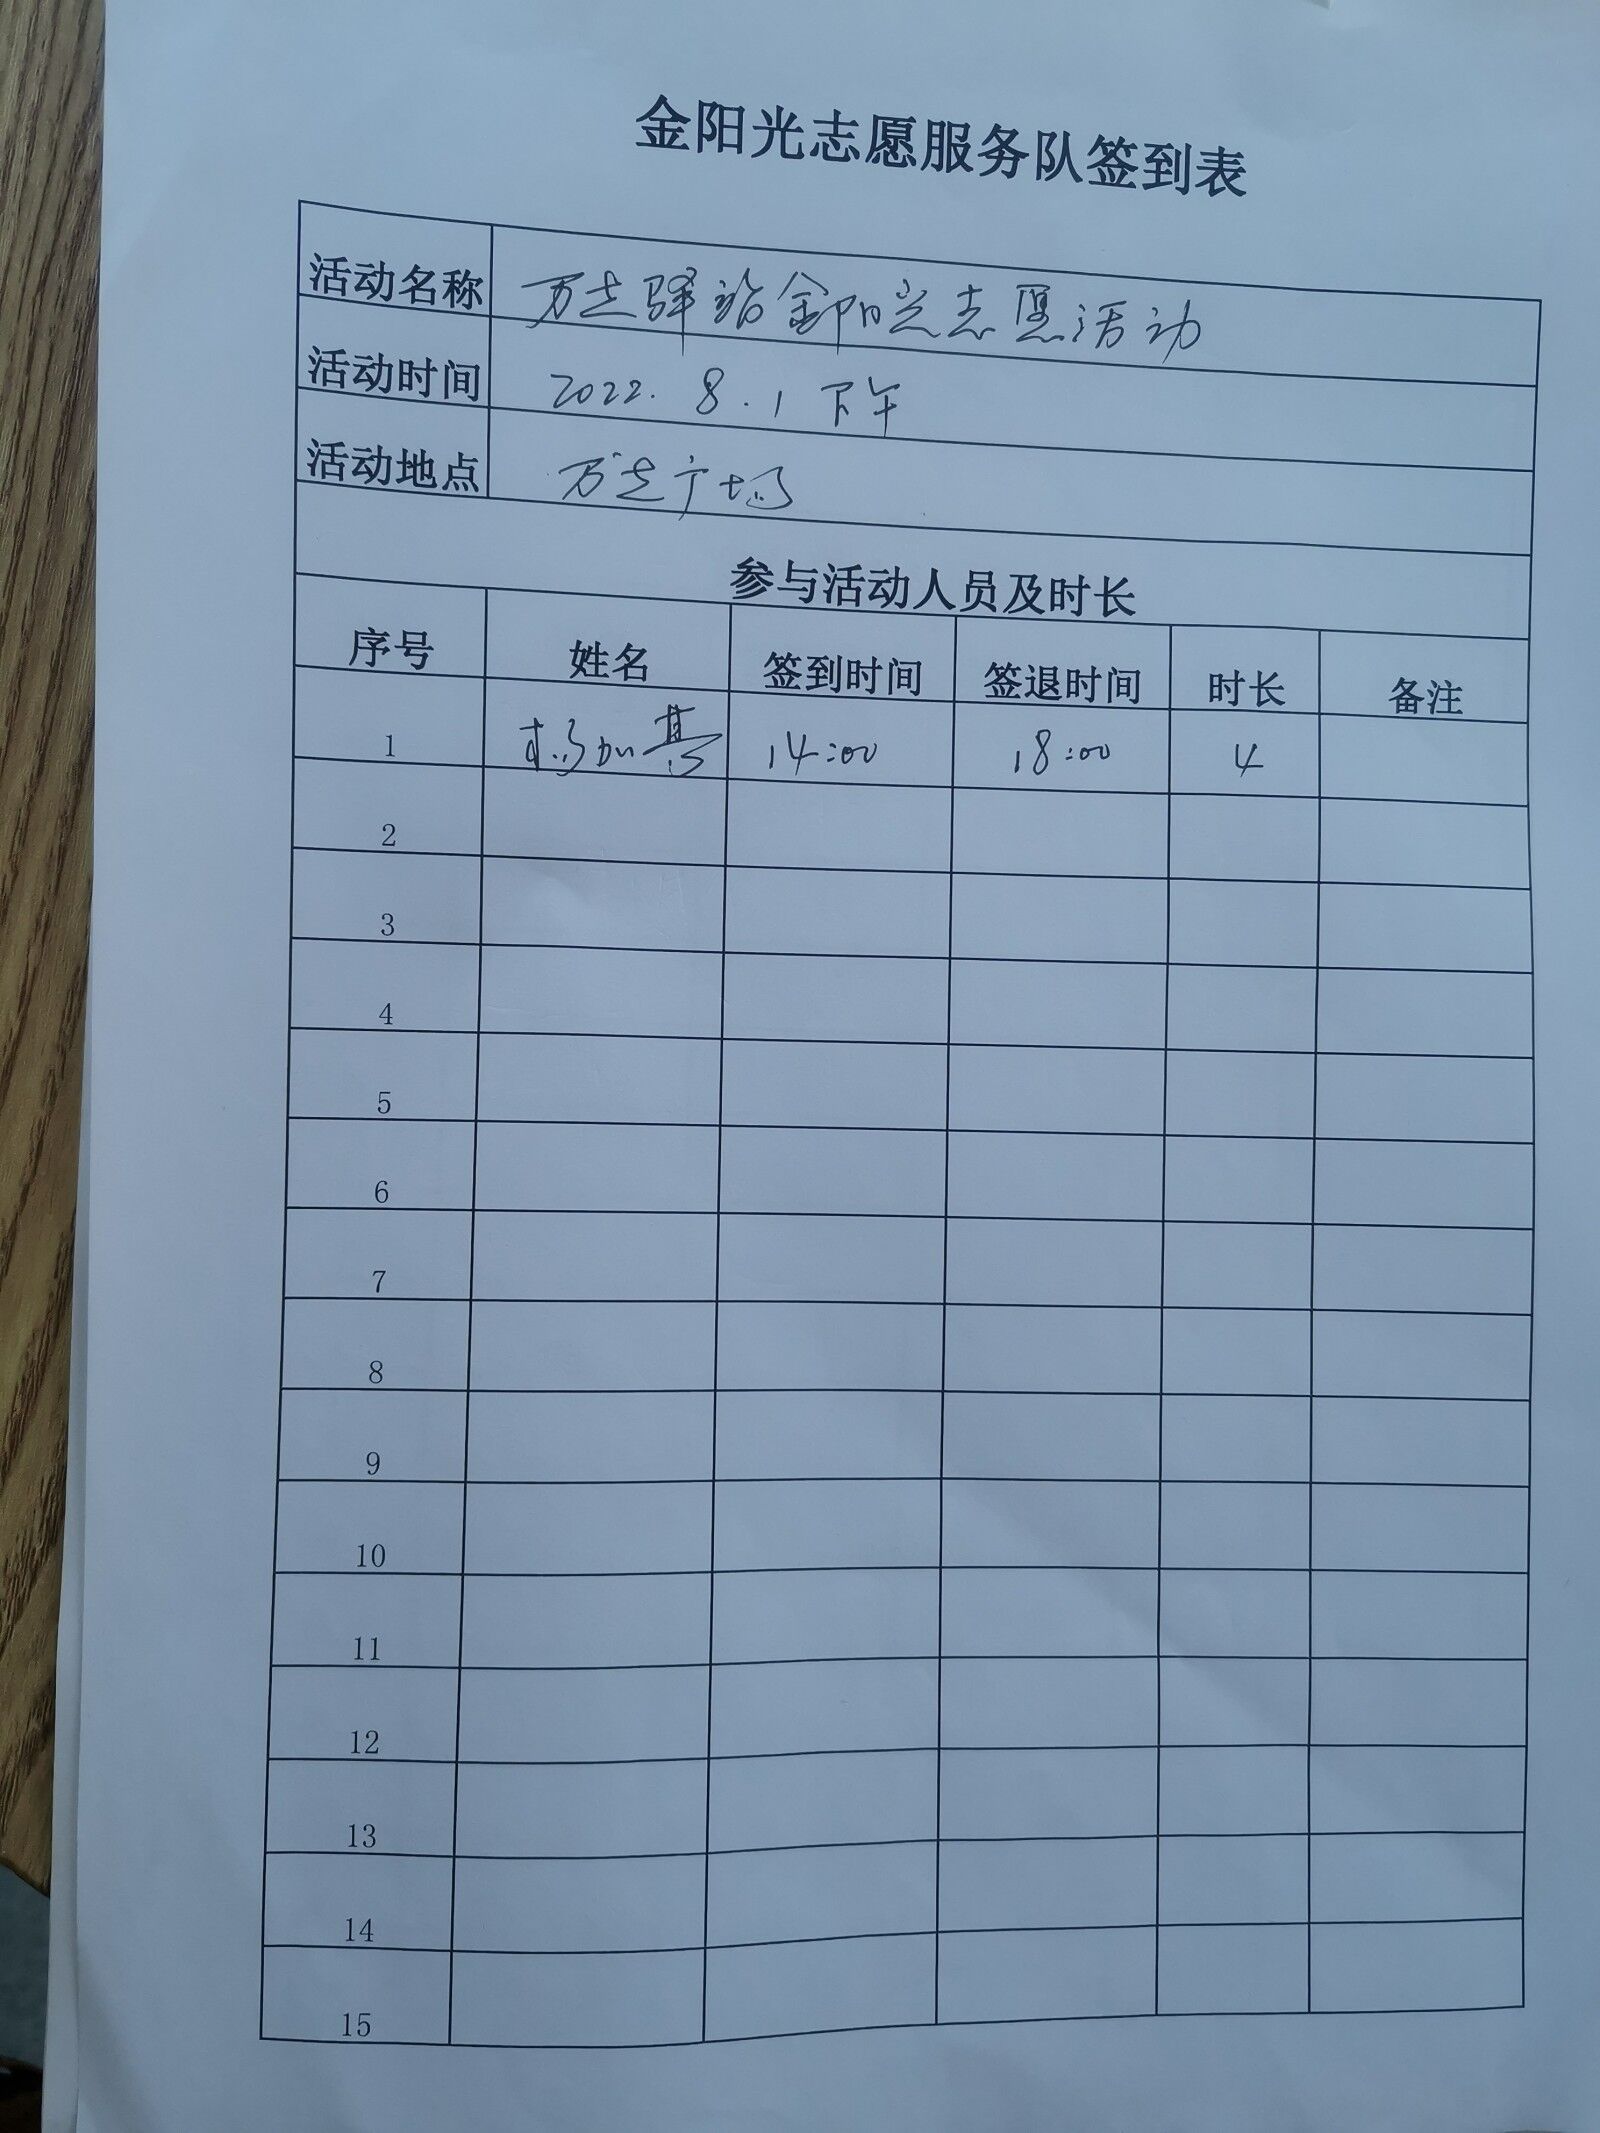 金阳光志愿服务队签到表
活动名称 万达驿站金阳光志愿活动
活动时间 2022.8.1 下午
活动地点 万达广场
参与活动人员及时长
序号 姓名 签到时间 签退时间 时长 备注
1 杨加基 14:00 18:00 4
2
3
4
5
6
7
8
9
10
11
12
13
14
15